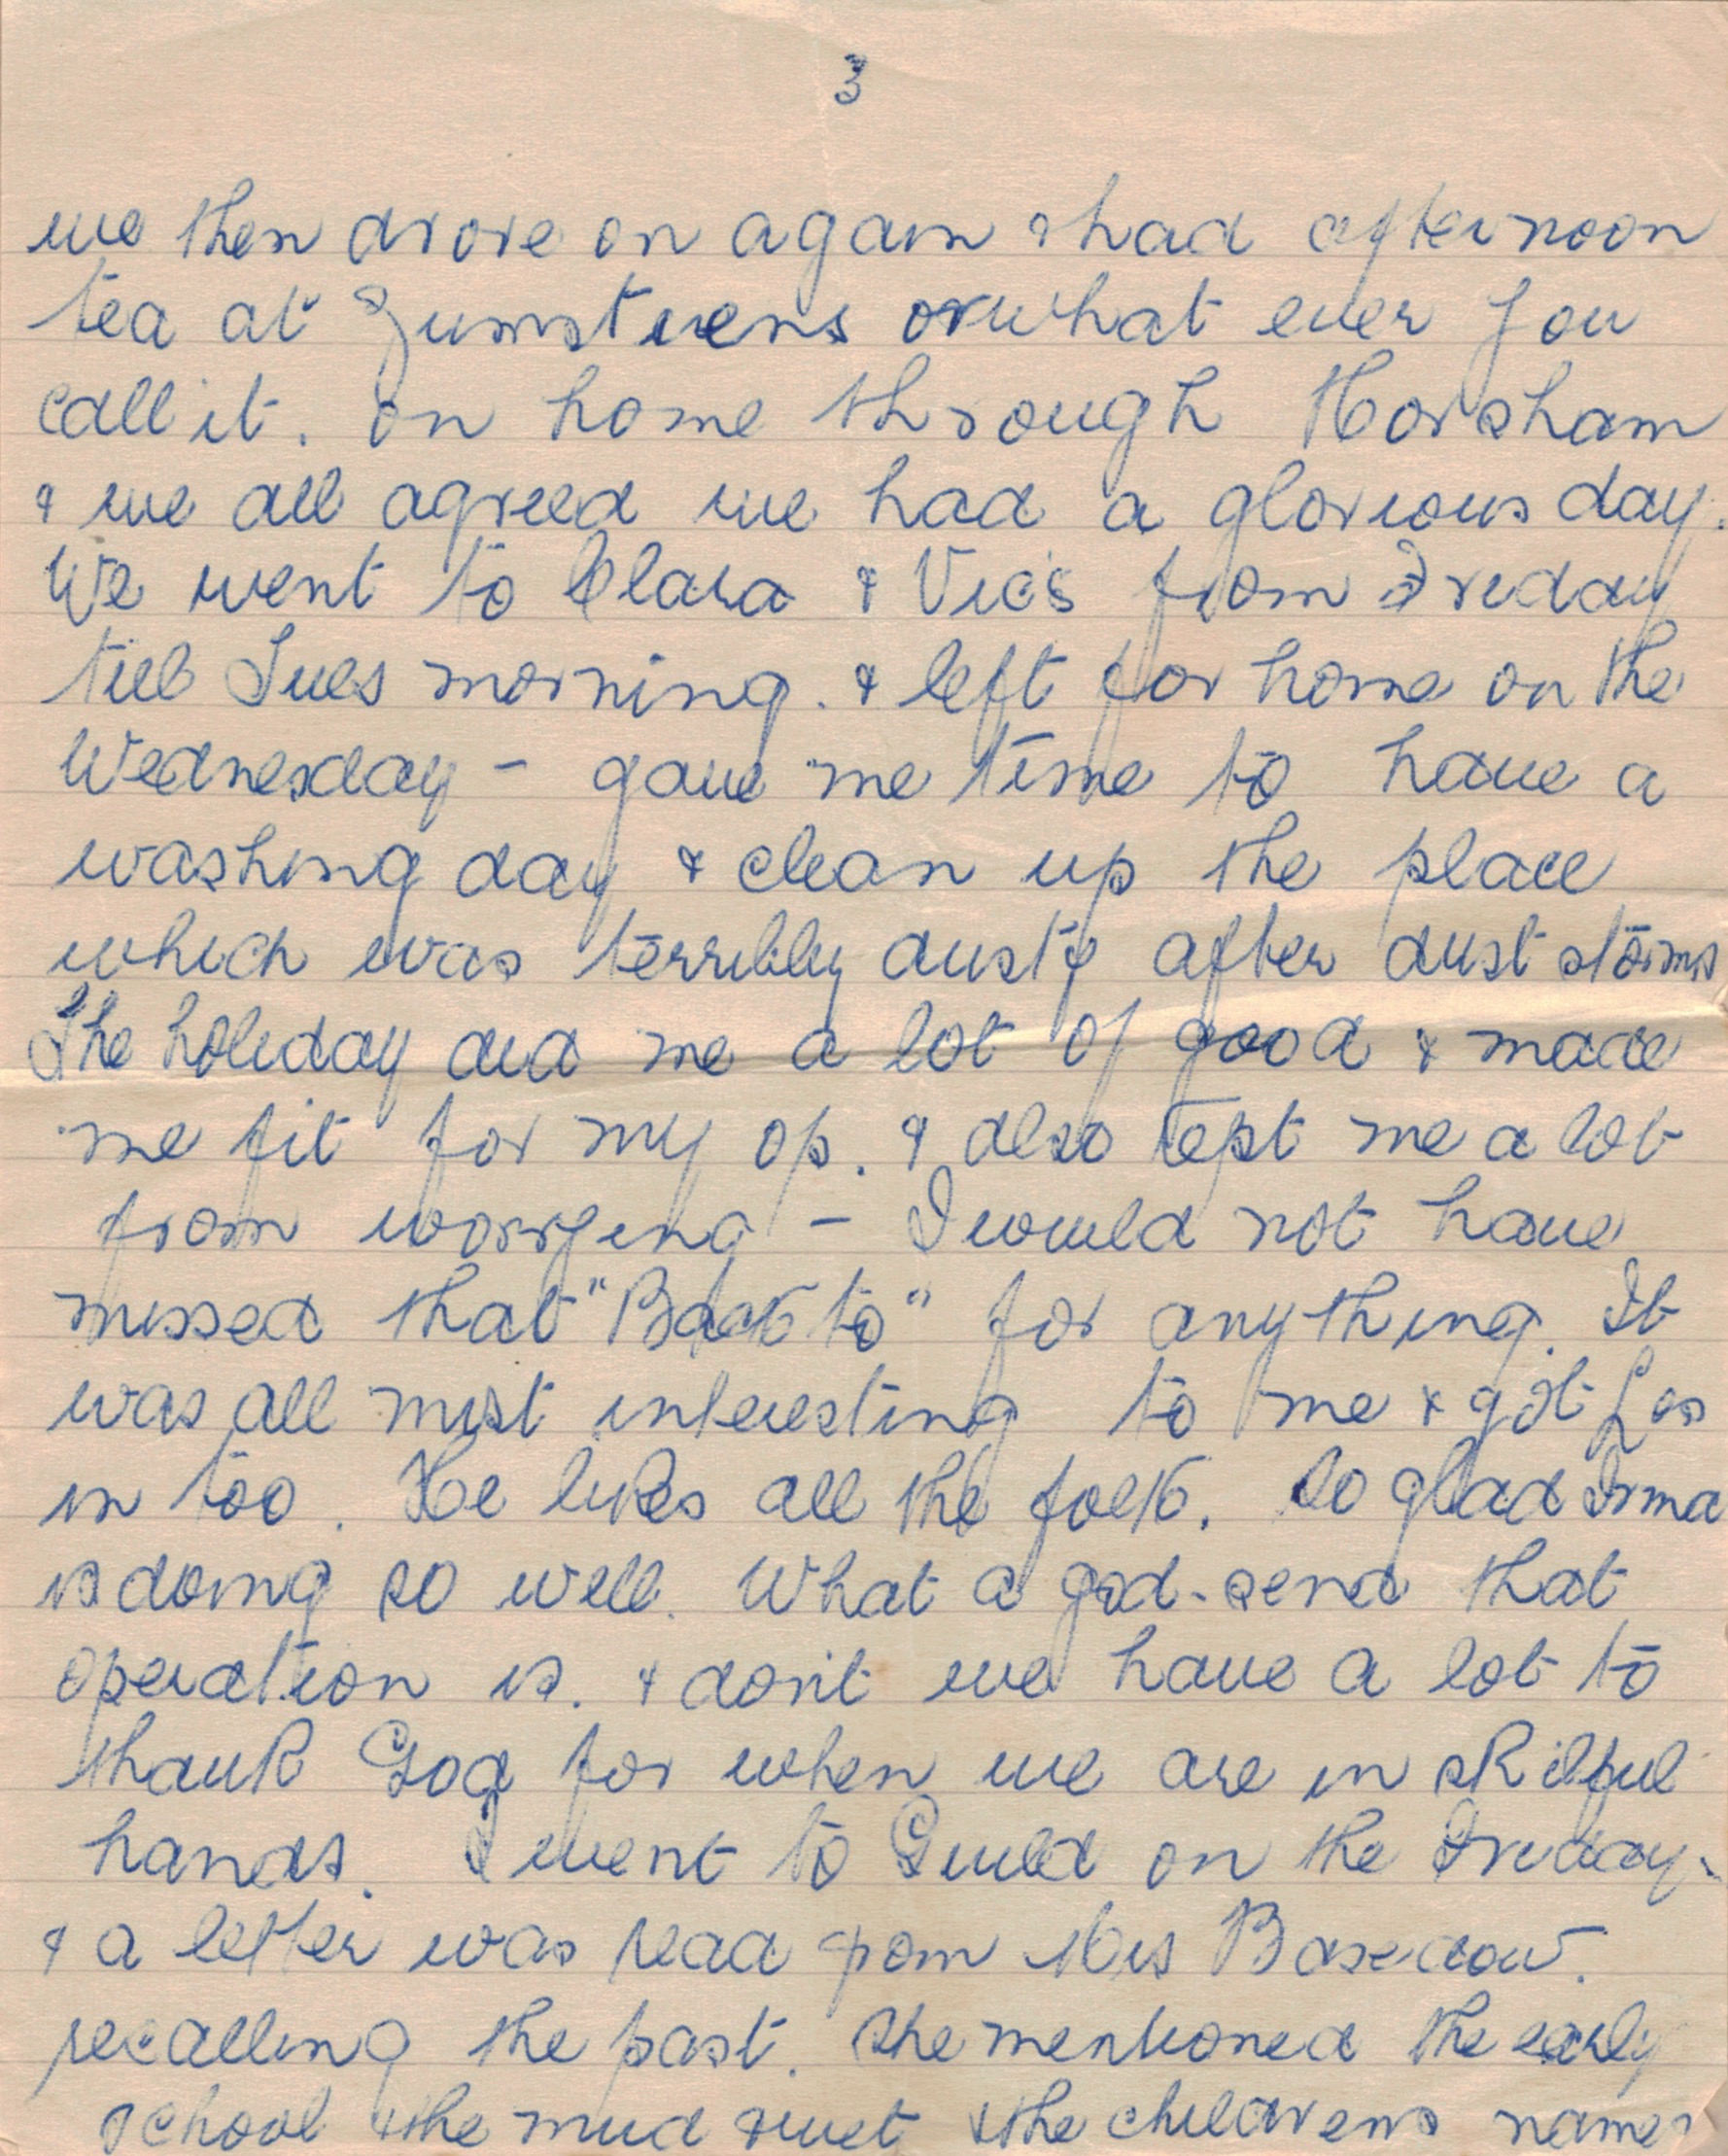 3
we then drove on again & had afternoon
tea at Zumsteins or what ever you
call it. On home through Horsham
& we all agreed we had a glorious day.
We went to Clara & Vic's from Friday
till Tues morning. & left for home on the
Wednesday - gave me time to have a
washing day & clean up the place
which was terribly dusty after dust storms
The holiday did me a lot of good & made
me fit for my op. & also kept me a lot
from worrying - I would not have
missed that "Back to" for anything. It
was all most interesting to me & got Les
in too. He likes all the folk. So glad Irma
is doing so well. What a god-send that
operation is. & don't we have a lot to
thank God for when we are in skilful
hands. I went to Guild on the Friday.
& a letter was read from Mrs Basedow.
recalling the past. She mentioned the early
school & the mud & wet & the childrens names